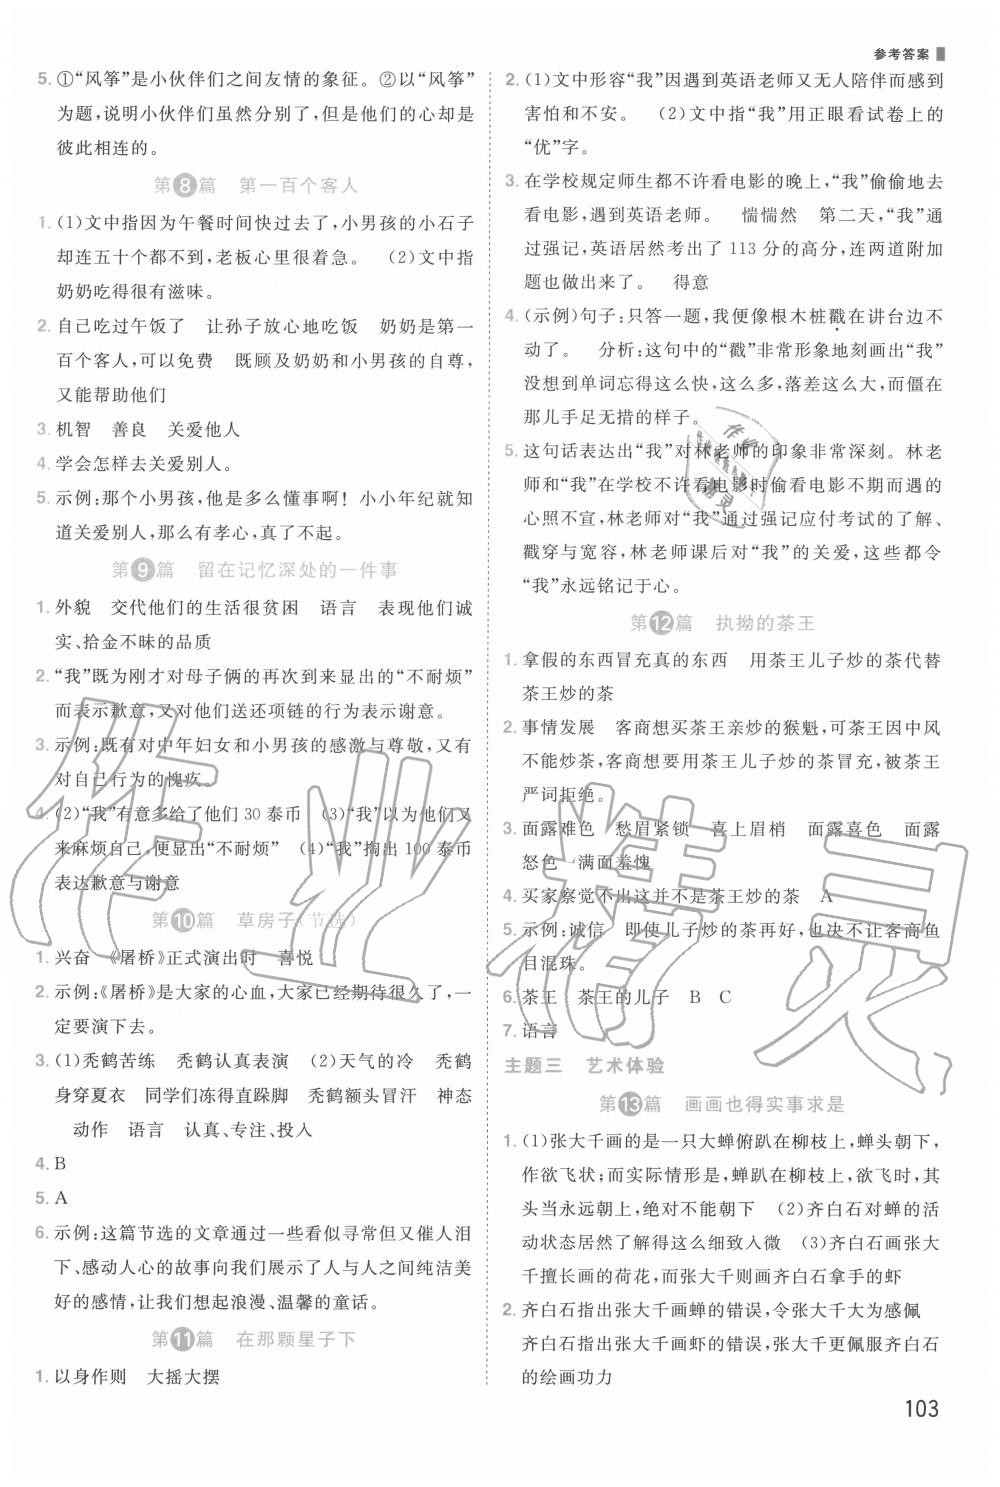 参考答案
5. ①“风筝”是小伙伴们之间友情的象征。②以“风筝”
为题,说明小伙伴们虽然分别了,但是他们的心却是
彼此相连的。
第8篇 第一百个客人
1. (1)文中指因为午餐时间快过去了,小男孩的小石子
却连五十个都不到,老板心里很着急。 (2)文中指
奶奶吃得很有滋味。
2. 自己吃过午饭了 让孙子放心地吃饭 奶奶是第一
百个客人,可以免费 既顾及奶奶和小男孩的自尊,
又能帮助他们
3. 机智 善良 关爱他人
4. 学会怎样去关爱别人。
5. 示例:那个小男孩,他是多么懂事啊! 小小年纪就知
道关爱别人,那么有孝心,真了不起。
第9篇 留在记忆深处的一件事
1. 外貌 交代他们的生活很贫困 语言 表现他们诚
实、拾金不昧的品质
2. “我”既为刚才对母子俩的再次到来显出的“不耐烦”
而表示歉意,又对他们送还项链的行为表示谢意。
3. 示例:既有对中年妇女和小男孩的感激与尊敬,又有
对自己行为的愧疚。
4. (2)“我”有意多给了他们 30 泰币 (3)“我”以为他们又
来麻烦自己,便显出“不耐烦” (4)“我”掏出 100 泰币
表达歉意与谢意
第10篇 草房子(节选)
1. 兴奋 《屠桥》正式演出时 喜悦
2. 示例:《屠桥》是大家的心血,大家已经期待很久了,一
定要演下去。
3. (1)秃鹤苦练 秃鹤认真表演 (2)天气的冷 秃鹤
身穿夏衣 同学们冻得直跺脚 秃鹤额头冒汗 神态
动作 语言 认真、专注、投入
4. B
5. A
6. 示例:这篇节选的文章通过一些看似寻常但又催人泪
下、感动人心的故事向我们展示了人与人之间纯洁美
好的感情,让我们想起浪漫、温馨的童话。
第11篇 在那颗星子下
1. 以身作则 大摇大摆
2. (1)文中形容“我”因遇到英语老师又无人陪伴而感到
害怕和不安。 (2)文中指“我”用正眼看试卷上的
“优”字。
3. 在学校规定师生都不许看电影的晚上,“我”偷偷地去
看电影,遇到英语老师。 惴惴然 第二天,“我”通
过强记,英语居然考出了 113 分的高分,连两道附加
题也做出来了。 得意
4. (示例)句子:只答一题,我便像根木桩戳在讲台边不
动了。 分析:这句中的“戳”非常形象地刻画出“我”
没想到单词忘得这么快,这么多,落差这么大,而僵在
那儿手足无措的样子。
5. 这句话表达出“我”对林老师的印象非常深刻。林老
师和“我”在学校不许看电影时偷看电影不期而遇的
心照不宣,林老师对“我”通过强记应付考试的了解、
戳穿与宽容,林老师课后对“我”的关爱,这些都令
“我”永远铭记于心。
第12篇 执拗的茶王
1. 拿假的东西冒充真的东西 用茶王儿子炒的茶代替
茶王炒的茶
2. 事情发展 客商想买茶王亲炒的猴魁,可茶王因中风
不能炒茶,客商想要王儿子炒的茶冒充,被茶王
严词拒绝。
3. 面露难色 愁眉紧锁 喜上眉梢 面露喜色 面露
怒色 满面羞愧
4. 买家察觉不出这并不是茶王炒的茶 A
5. 示例:诚信 即使儿子炒的茶再好,也决不让客商鱼
目混珠。
6. 茶王 茶王的儿子 B C
7. 语言
主题三 艺术体验
第13篇 画画也得实事求是
1. (1)张大千画的是一只大蝉俯趴在柳枝上,蝉头朝下,
作欲飞状;而实际情形是,蝉趴在柳枝上,欲飞时,其
头当永远朝上,绝对不能朝下 (2)齐白石对蝉的活
动状态居然了解得这么细致入微 (3)齐白石画张大
千擅长画的荷花,而张大千则画齐白石拿手的虾
2. 齐白石指出张大千画蝉的错误,令张大千大为感佩
齐白石指出张大千画虾的错误,张大千更佩服齐白石
的绘画功力
103
作业精灵
作业
精灵